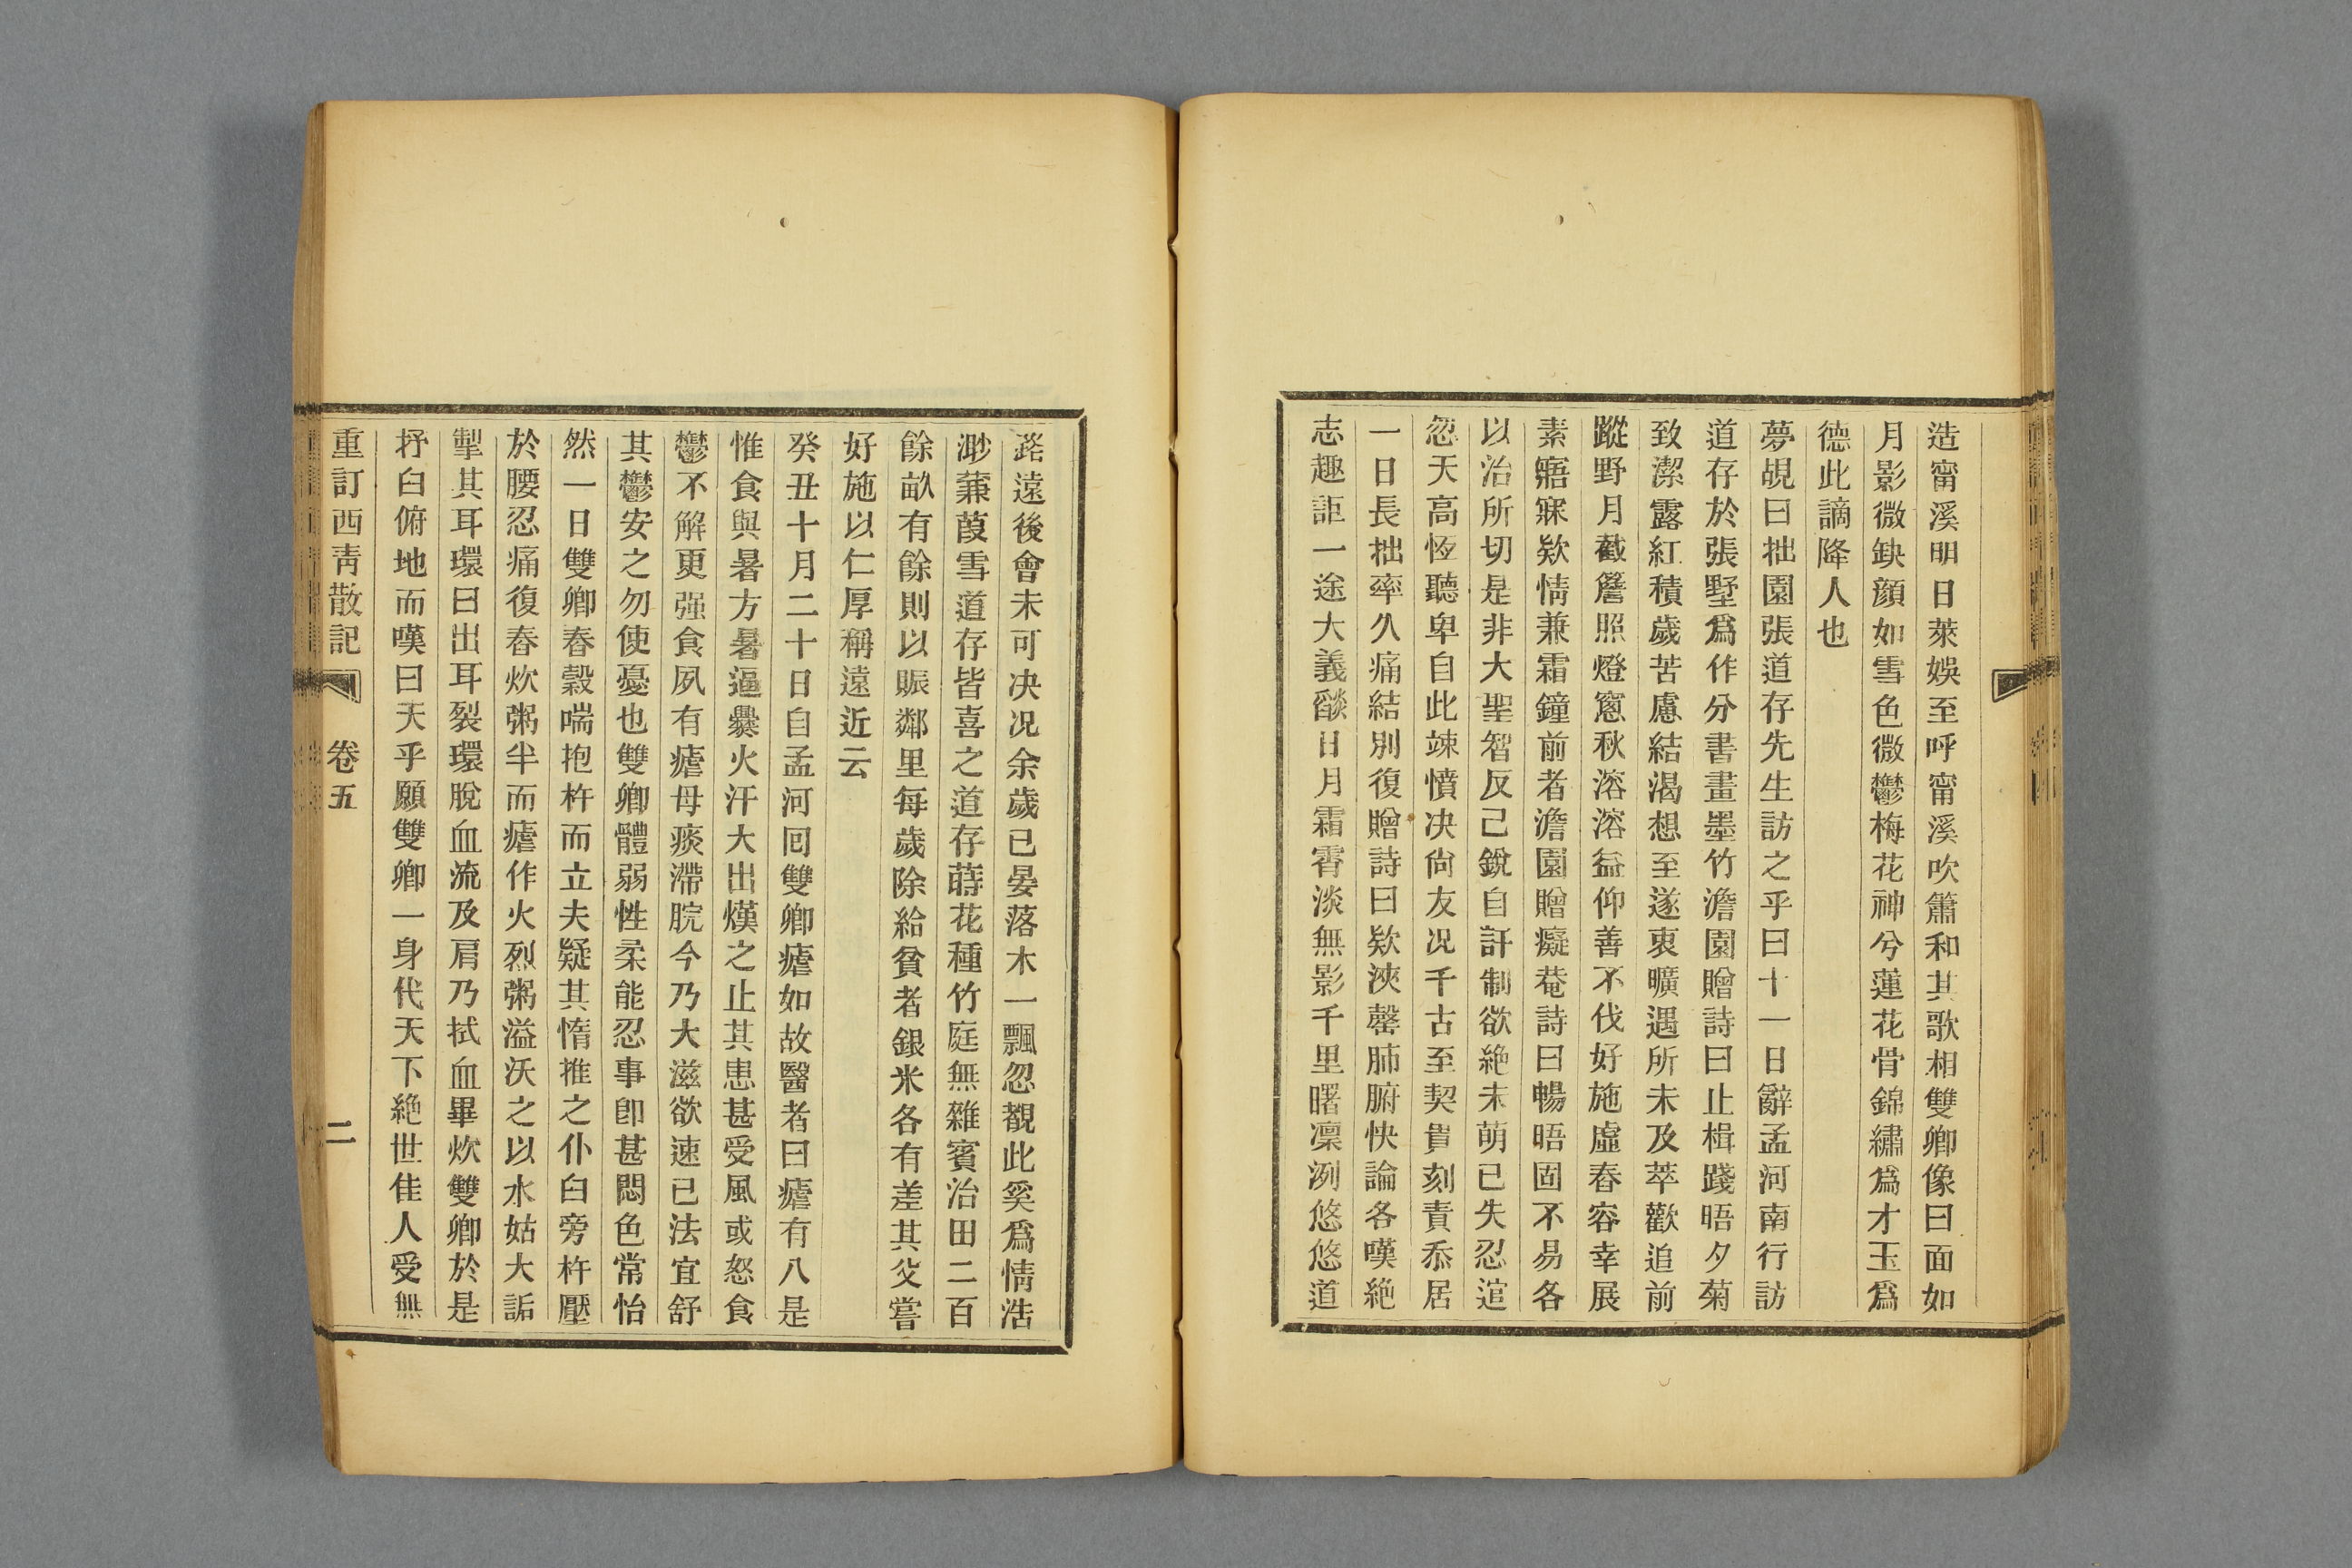 造甯溪明日萊娛至呼甯溪吹簫和其歌相雙卿像曰面如
月影微缺顏如雪色微鬱梅花神兮蓮花骨錦繡爲才玉爲
德此謫降人也
夢覘曰拙園張道存先生訪之乎曰十一日辭孟河南行訪
道存於張墅爲作分書畫墨竹澹園贈詩曰止楫踐晤夕菊
致潔露紅積歲苦慮結渴想至遂衷曠遇所未及萃歡追前
蹤野月截簷照燈窻秋溶溶益仰善不伐好施虛春容幸展
素寤寐欵情兼霜鐘前者澹園贈癡菴詩曰暢晤固不易各
以治所切是非大聖智反己銳自訐制欲絶未萌已失忍諠
忽天高恆聽卑自此竦憤决尙友况千古至契貴刻責忝居
一日長拙率久痛結別復贈詩曰欵浹罄肺腑快論各嘆絶
志趣詎一途大義燄日月霜霄淡無影千里曙凛冽悠悠道
路遠後會未可决况余歲已晏落木一飄忽覩此奚爲情浩
渺蒹葭雪道存皆喜之道存蒔花種竹庭無雜賓治田二百
餘畝有餘則以賑鄰里每歲除給貧者銀米各有差其父嘗
好施以仁厚稱遠近云
癸丑十月二十日自孟河囘雙卿瘧如故醫者曰瘧有八是
惟食與暑方暑逼爨火汗大出熯之止其患甚受風或怒食
鬱不解更强食夙有瘧母痰滯脘今乃大滋欲速已法宜舒
其鬱安之勿使憂也雙卿體弱性柔能忍事卽甚悶色常怡
然一日雙卿舂穀喘抱杵而立夫疑其惰推之仆臼旁杵壓
於腰忍痛復舂炊粥半而瘧作火烈粥溢沃之以水姑大詬
掣其耳環曰出耳裂環脫血流及肩乃拭血畢炊雙卿於是
抒臼俯地而嘆曰天乎願雙卿一身代天下絶世佳人受無
重訂西靑散記 卷五 二